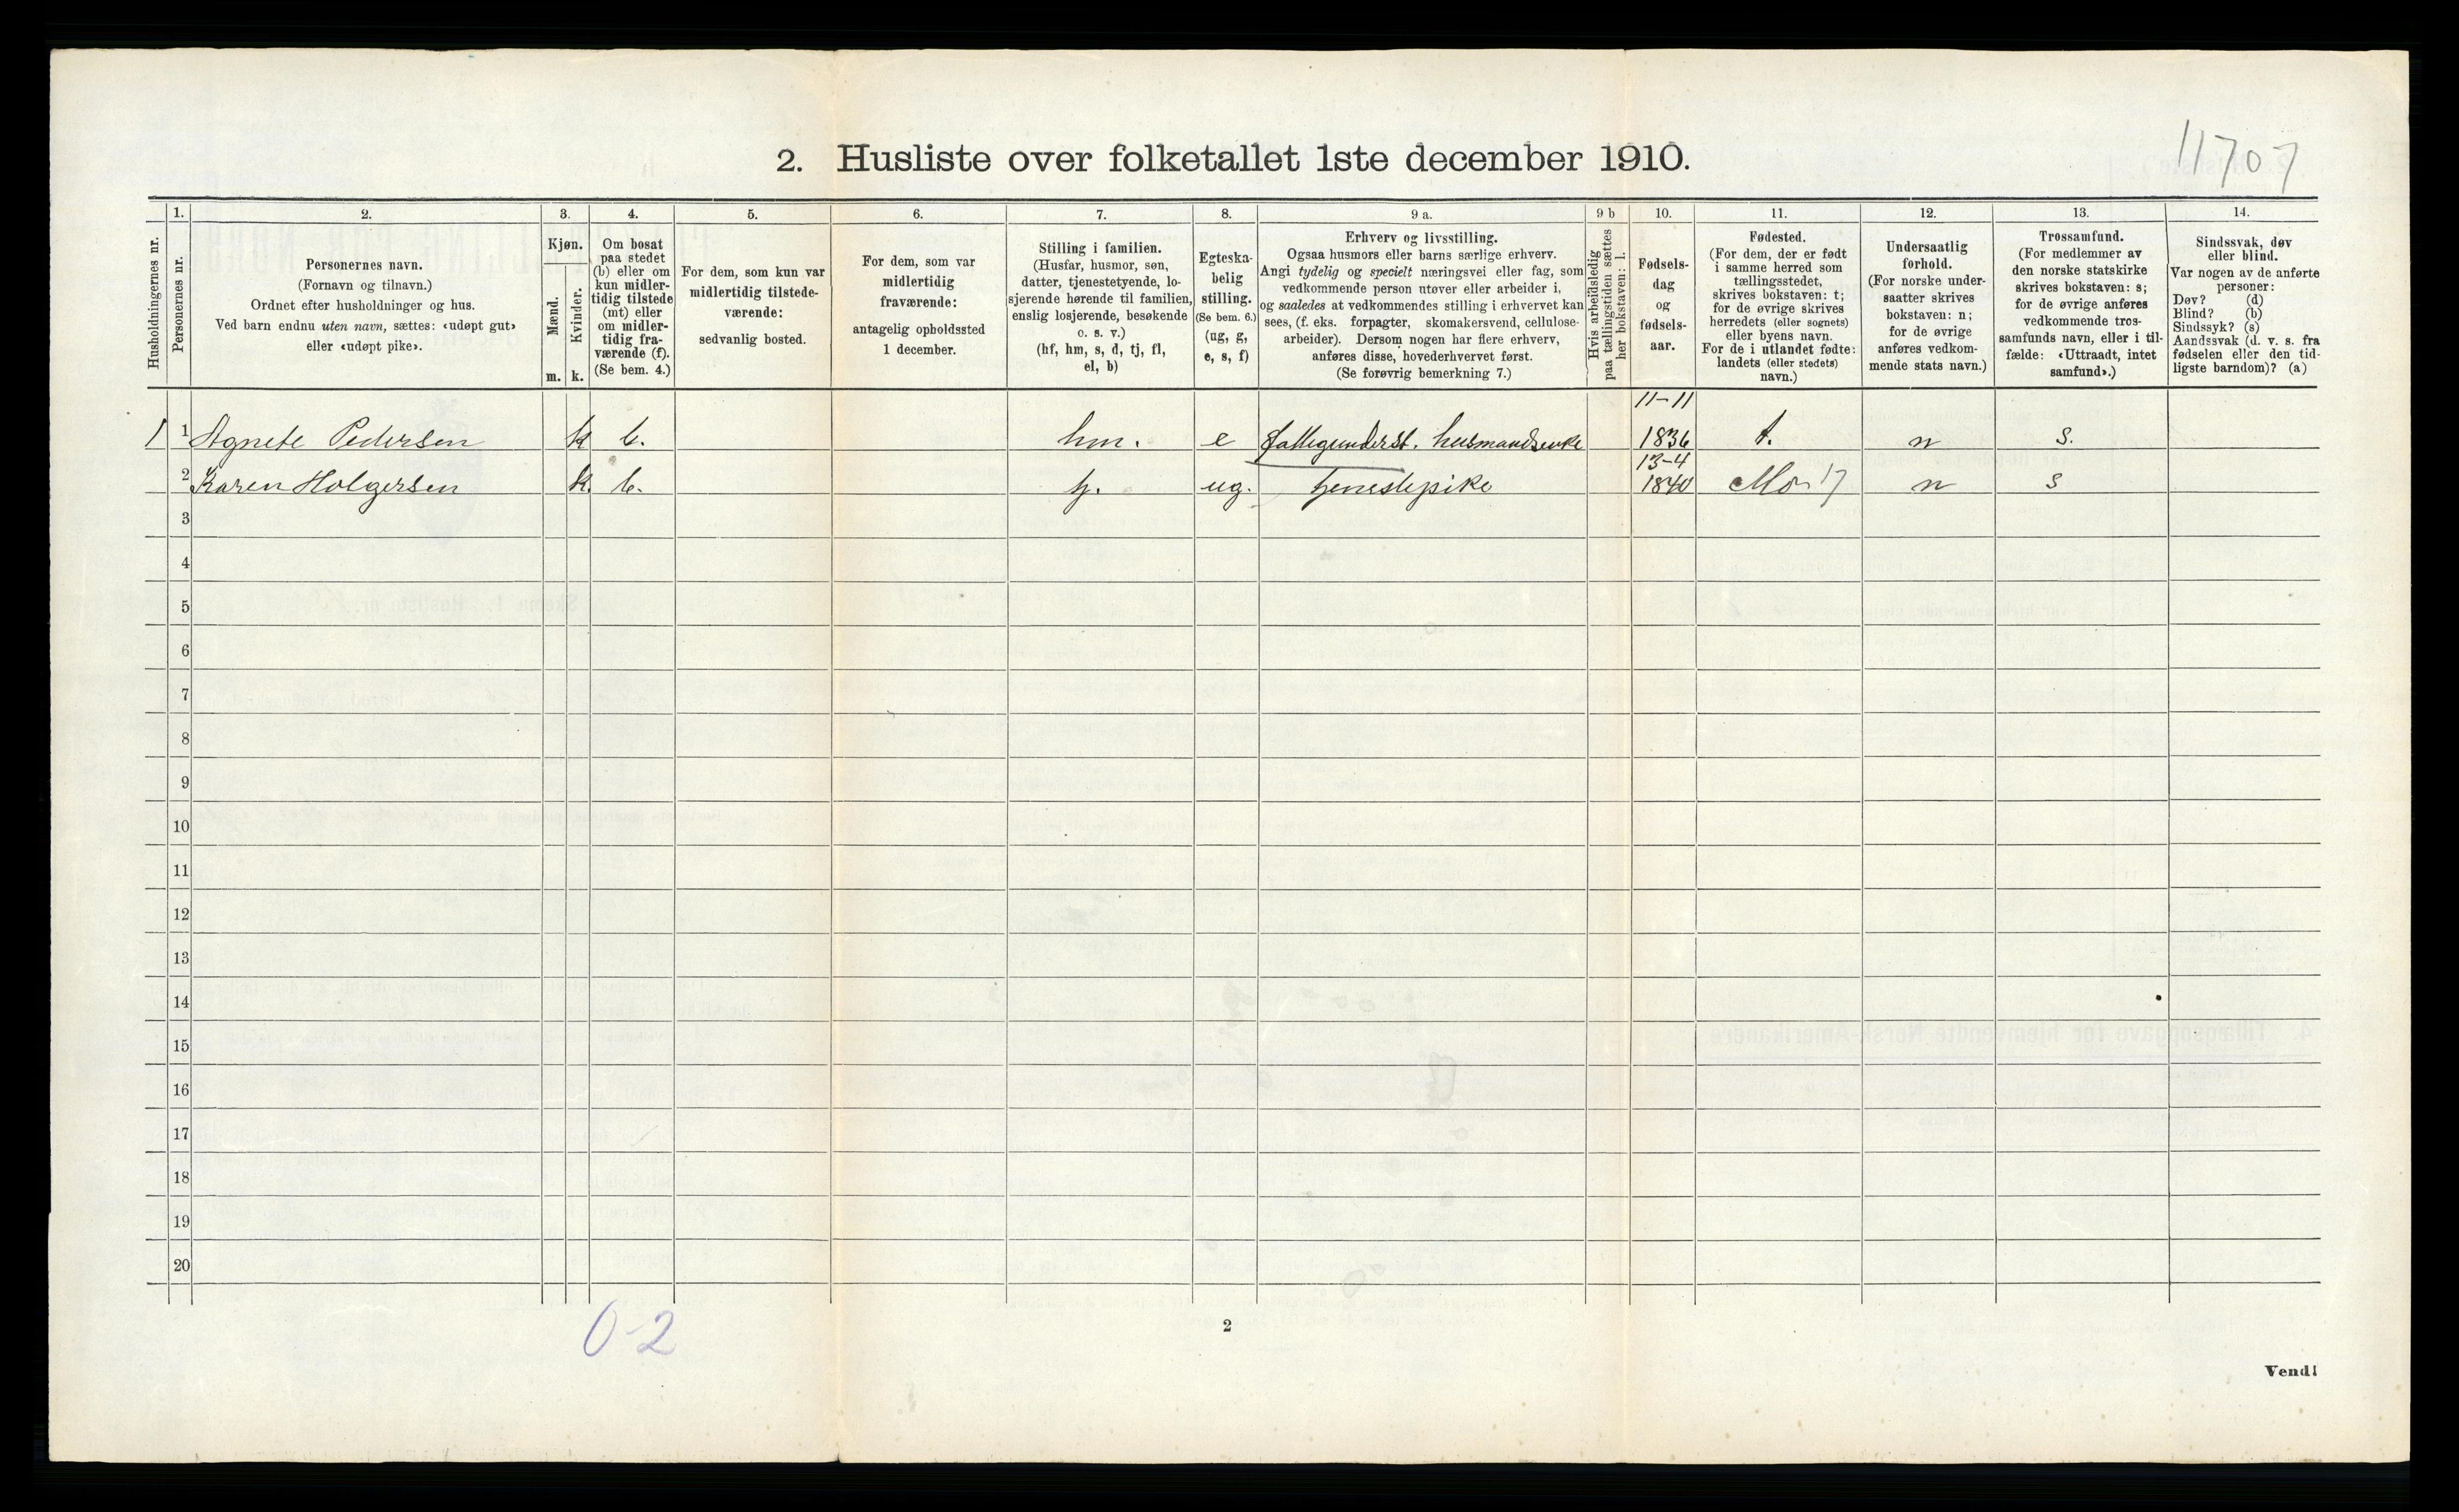 11707
2. Husliste over folketallet 1ste december 1910.
1. 2. 3. 4. 5. 6. 7. 8. 9 a. 9 b 10. 11. 12. 13. 14.
Husholdningernes nr.
Personernes nr.
Personernes navn.
(Fornavn og tilnavn.)
Ordnet efter husholdninger og hus.
Ved barn endnu uten navn, sættes: «udøpt gut»
eller «udøpt pike».
Kjøn.
Mænd.
Kvinder.
m. k.
Om bosat
paa stedet
(b) eller om
kun midler-
tidig tilstede
(mt) eller
om midler-
tidig fra-
værende (f).
(Se bem. 4.)
For dem, som kun var
midlertidig tilstede-
værende:
sedvanlig bosted.
For dem, som var
midlertidig
fraværende:
antagelig opholdssted
1 december.
Stilling i familien.
(Husfar, husmor, søn,
datter, tjenestetyende, lo-
sjerende hørende til familien,
enslig losjerende, besøkende
o. s. v.)
(hf, hm, s, d, tj, fl,
el, b)
Egteska-
belig
stilling.
(Se bem. 6.)
(ug, g,
e, s, f)
Erhverv og livsstilling.
Ogsaa husmors eller barns særlige erhverv.
Angi tydelig og specielt næringsvei eller fag, som
vedkommende person utøver eller arbeider i,
og saaledes at vedkommendes stilling i erhvervet kan
sees, (f. eks. forpagter, skomakersvend, cellulose-
arbeider). Dersom nogen har flere erhverv,
anføres disse, hovederhvervet først.
(Se forøvrig bemerkning 7.)
Hvis arbeidsledig
paa tællingstiden sættes
her bokstaven: l.
Fødsels-
dag
og
fødsels-
aar.
Fødested.
(For dem, der er født
i samme herred som
tællingsstedet,
skrives bokstaven: t;
for de øvrige skrives
herredets (eller sognets)
eller byens navn.
For de i utlandet fødte:
landets (eller stedets)
navn.)
Undersaatlig
forhold.
(For norske under-
saatter skrives
bokstaven: n;
for de øvrige
anføres vedkom-
mende stats navn.)
Trossamfund.
(For medlemmer av
den norske statskirke
skrives bokstaven: s;
for de øvrige anføres
vedkommende tros-
samfunds navn, eller i til-
fælde: «Uttraadt, intet
samfund».)
Sindssvak, døv
eller blind.
Var nogen av de anførte
personer:
Døv? (d)
Blind? (b)
Sindssyk? (s)
Aandssvak (d. v. s. fra
fødselen eller den tid-
ligste barndom)? (a)
11-11
1 1 Agnete Pedersen k b. hm. e fattigunderst. husmandsenke 1836 t. n s.
13-4
2 Karen Holgersen k. b. tj. ug. tjenestepike 1840 Mo 17 n s
3
4
5
6
7
8
9
10
11
12
13
14
15
16
17
18
19
20
0-2
2
Vend!